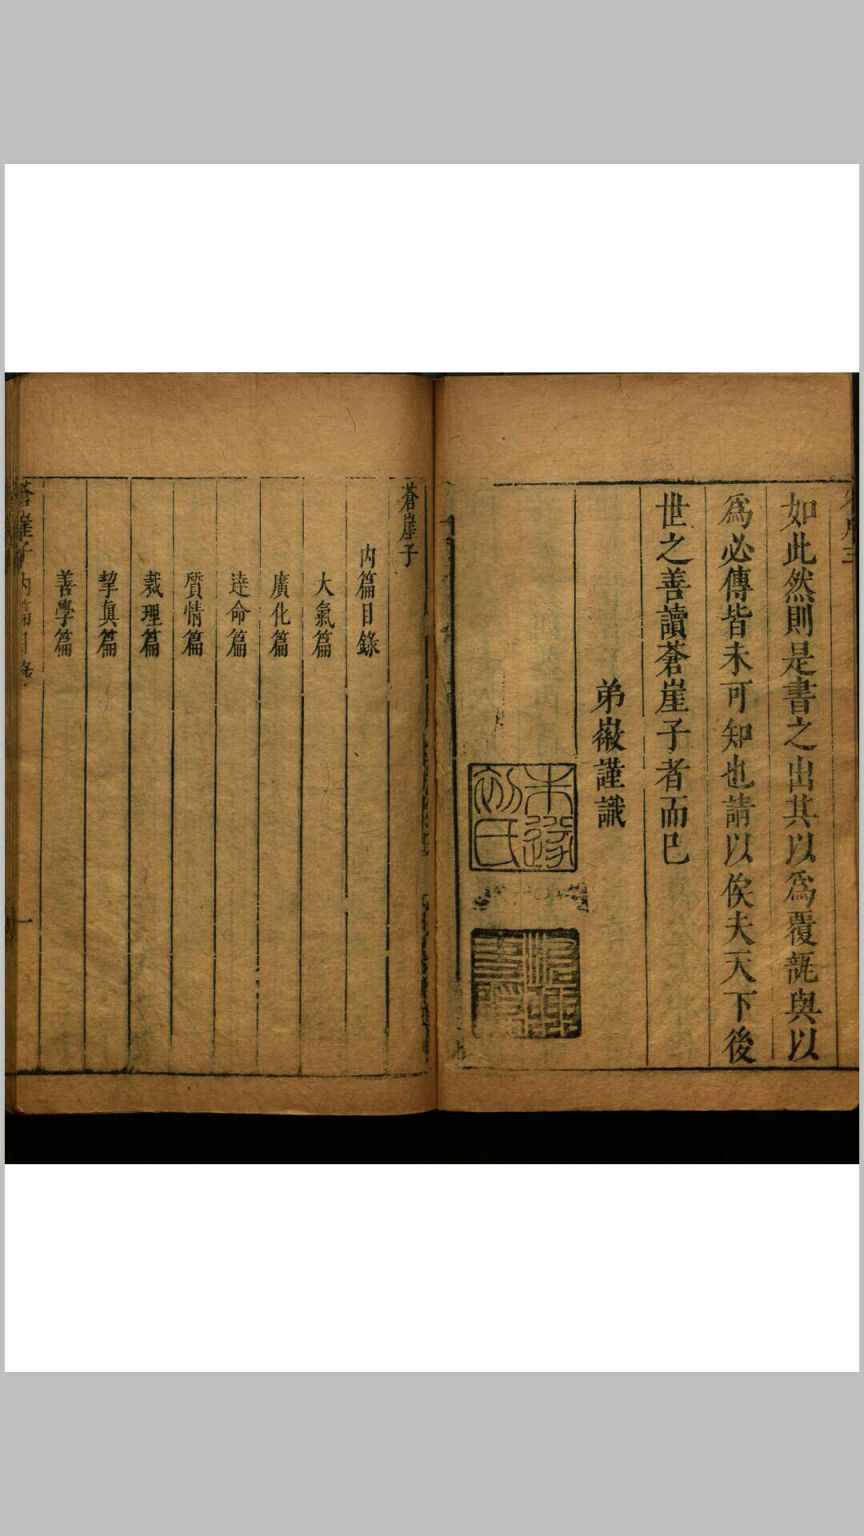 如此然則是書之出其以爲覆瓿與以
爲必傳皆未可知也請以俟夫天下後
世之善讀蒼崖子者而已
弟嶶謹識
蒼崖子
内篇目錄
大氣篇
廣化篇
達命篇
質情篇
裁理篇
挈眞篇
善學篇
蒼崖子内篇目錄
一